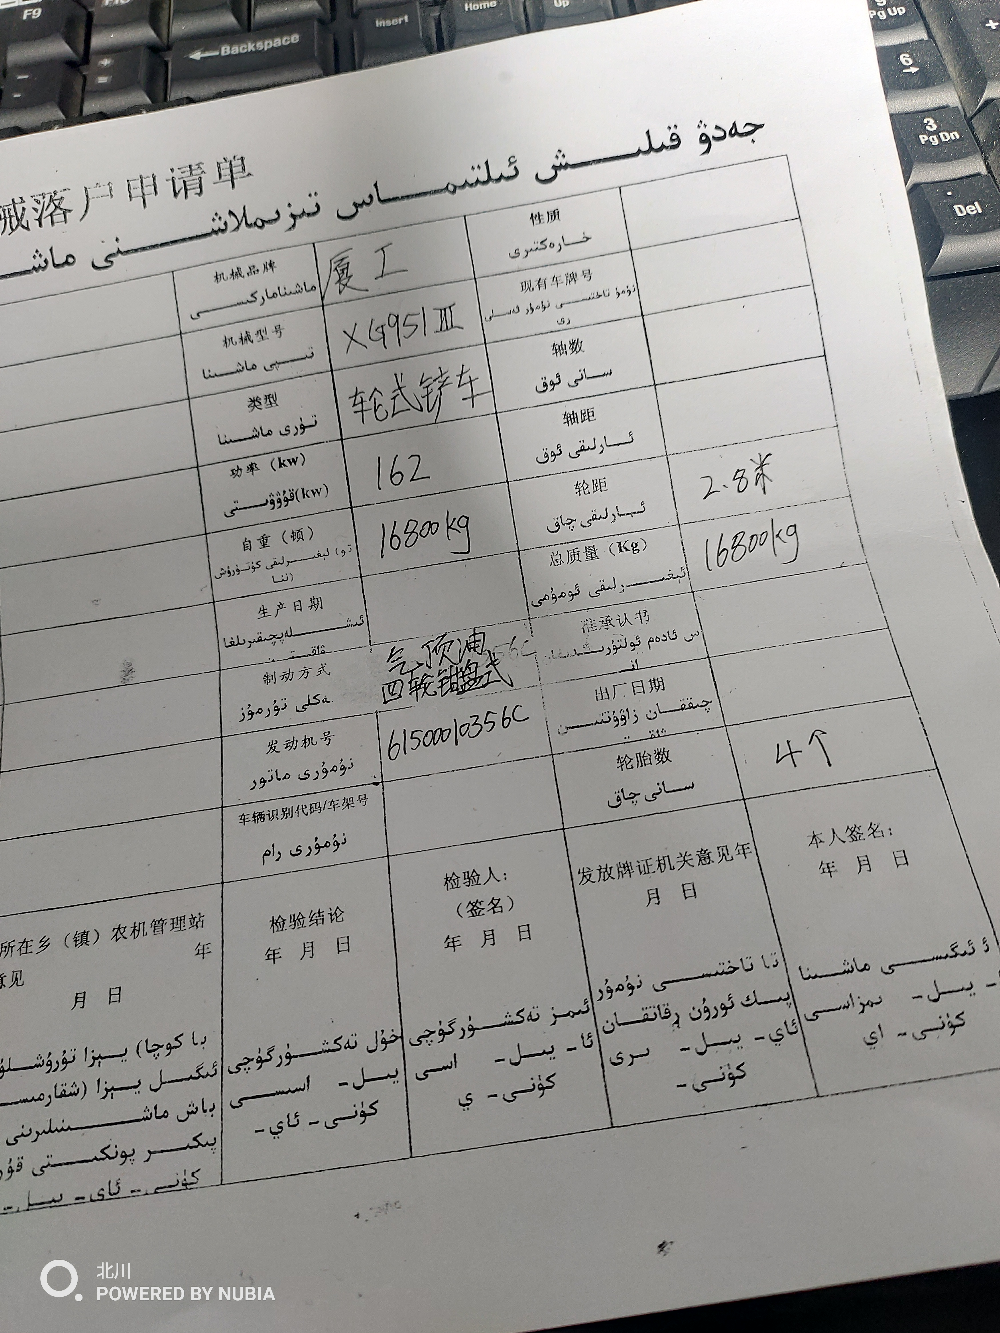 F9
Backspace
Insert
Home
Up
9
Pg Up
6
3
Pg Dn
Del
械落户申请单
جەدۋ قىلىش ئىلتىماس تىزىملاشنى ماش
机械品牌
ماشىنامار كىسى
厦工
性质
خارەكتىرى
机械型号
تىپى ماشىنا
XG951Ⅲ
现有车牌号
类型
تۈرى ماشىنا
轮式铲车
轴数
سانى ئوق
功率（kw）
قۇۋۋىتى(kw)
162
轴距
ئارلىقى ئوق
自重（顿）
16800kg
轮距
ئارلىقى چاق
2.8米
生产日期
总质量（Kg）
ئېغىرلىقى ئومۇمى
16800kg
制动方式
ەكلى تورمۇز
气顶油
四轮钳盘式
准承认书
发动机号
نۇمۇرى ماتور
6150001035 6C
出厂日期
چىققان زاۋۇتتىن
车辆识别代码/车架号
نۇمۇرى رام
轮胎数
سانى چاق
4个
所在乡（镇）农机管理站
意见 年
月 日
检验结论
年 月 日
检验人：
（签名）
年 月 日
发放牌证机关意见年
月 日
本人签名：
年 月 日
خۇل تەكشۈرگۈچى
يىل- اسىسى
كۈنى- ئاي-
ئىمز تەكشۈرگۈچى
ئا- يىل- اسى
كۈنى- ي
تا تاختىسى نۇمۇر
پىك ئورۇن رقاتقان
ئاي- يىل- ىرى
كۈنى-
ئ ئىگىسى ماشىنا
- يىل- ىمزاسى
كۈنى- اي
با كوچا) يېزا تۇرۇشلۇ
ئىگىل يېزا (شقارمىس
باش ماشىنىلىرىنى
پىكىر پونكىتى قۇر
كۈنى- ئاي- يىل-
北川
POWERED BY NUBIA